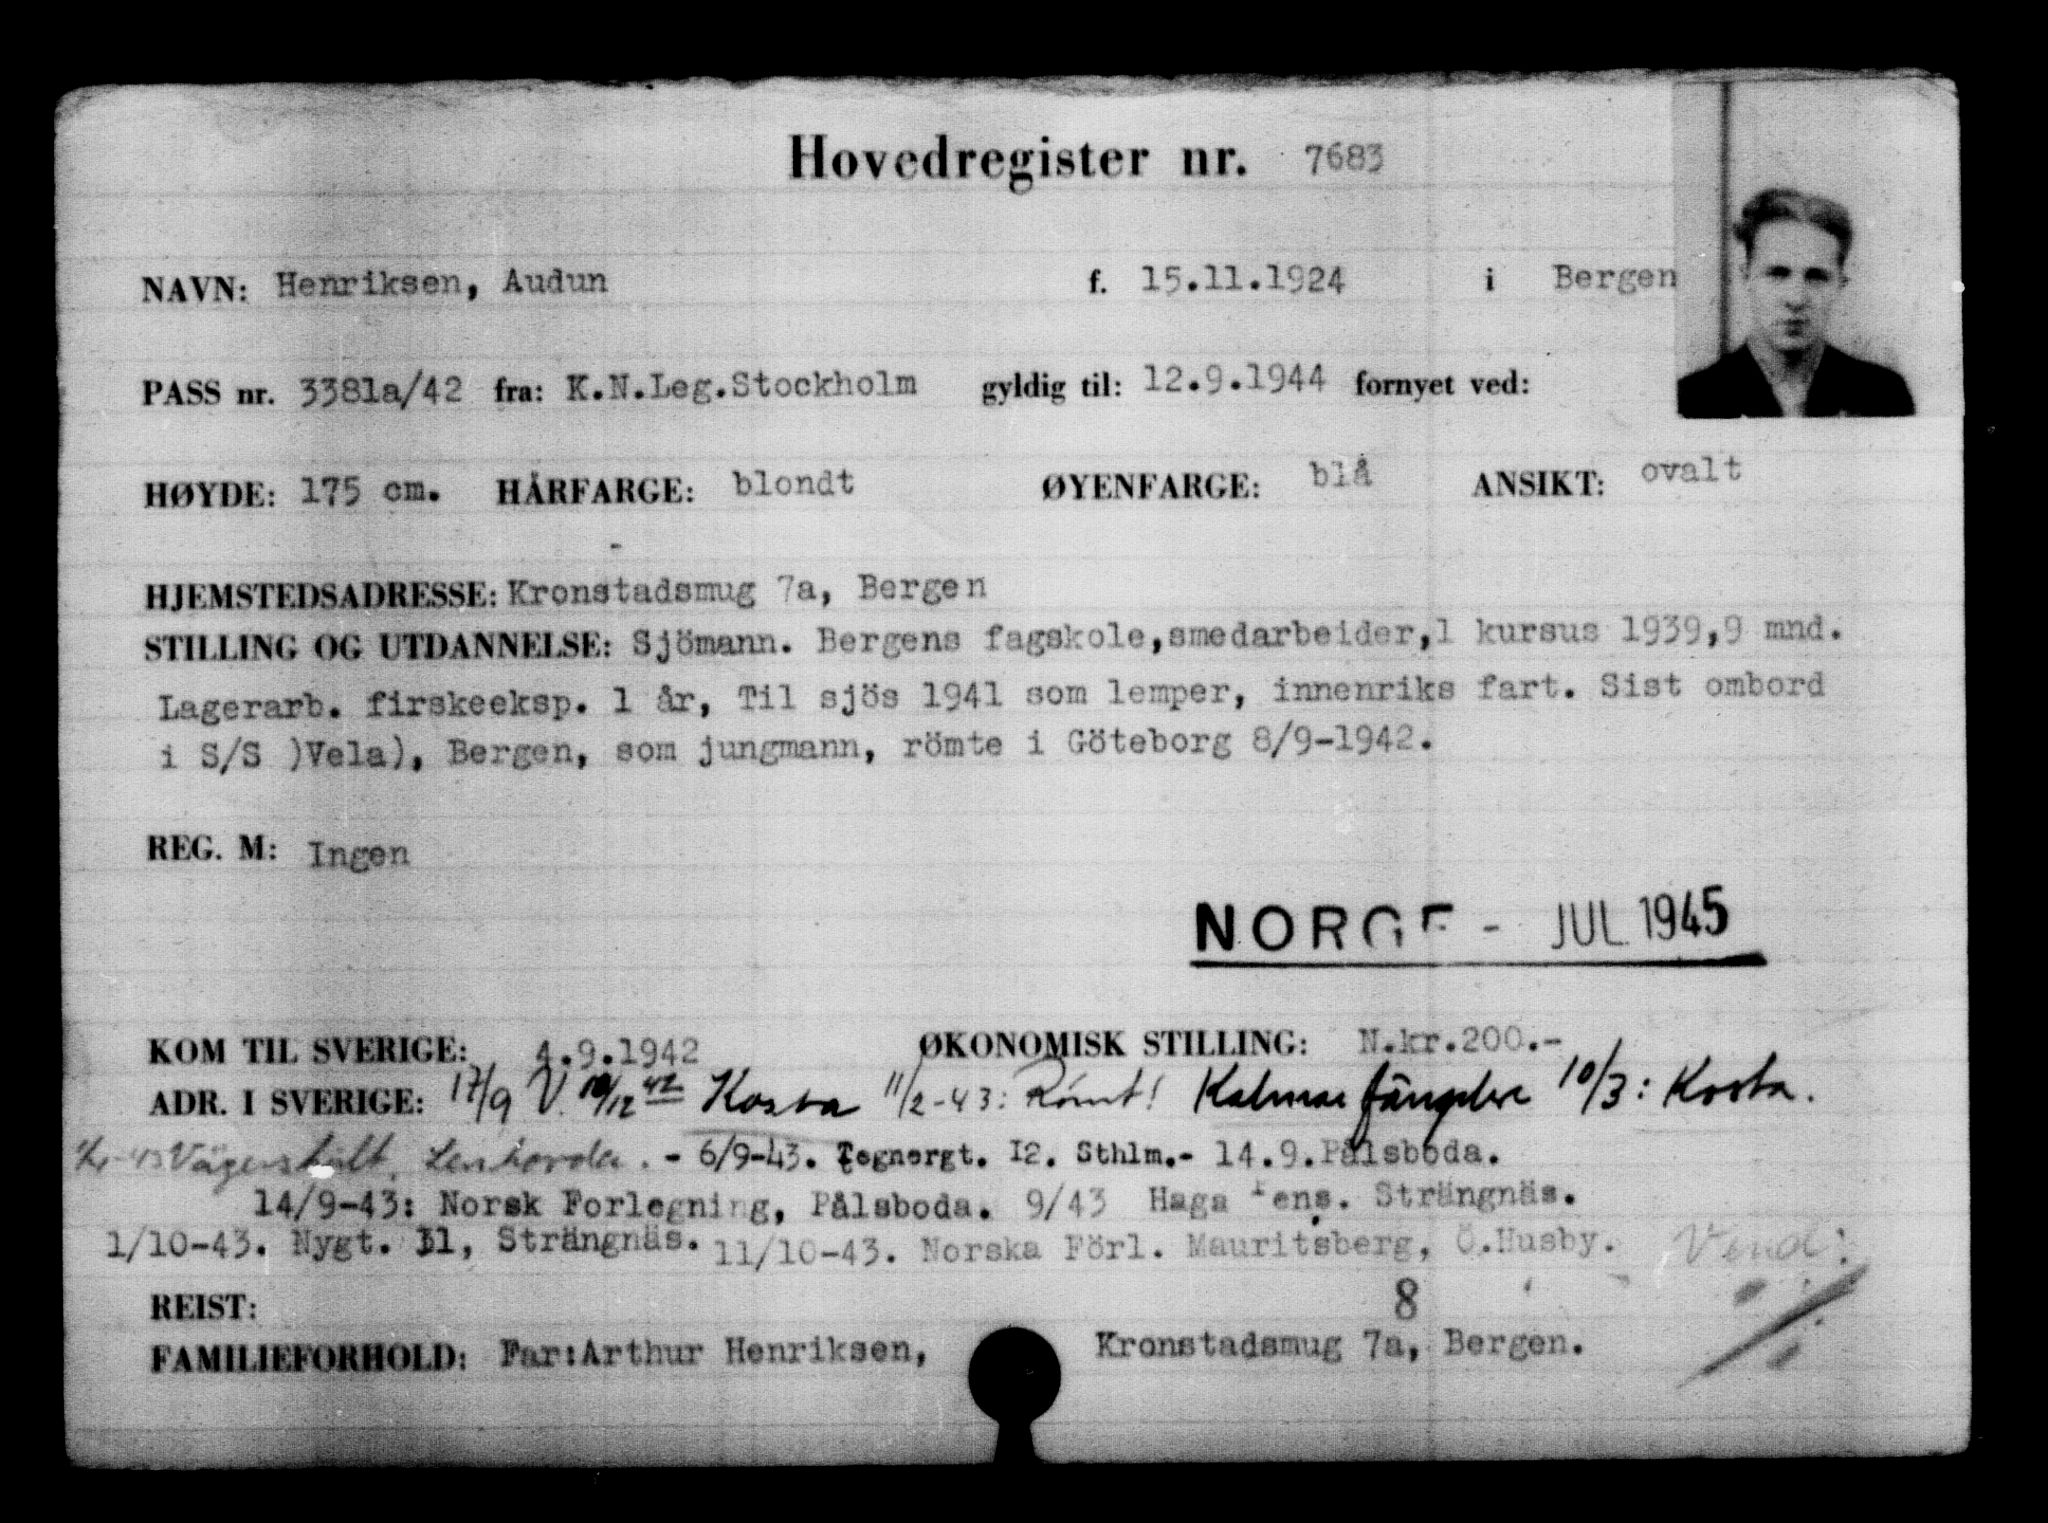 Hovedregister nr. 7683
NAVN: Henriksen, Audun f. 15.11.1924 i Bergen
PASS nr. 3381a/42 fra: K.N.Leg.Stockholm gyldig til: 12.9.1944 fornyet ved:
HØYDE: 175 cm. HÅRFARGE: blondt ØYENFARGE: blå ANSIKT: ovalt
HJEMSTEDSADRESSE: Kronstadsmug 7a, Bergen
STILLING OG UTDANNELSE: Sjömann. Bergens fagskole,smedarbeider,1 kursus 1939,9 mnd.
Lagerarb. firskeeksp. 1 år, Til sjös 1941 som lemper, innenriks fart. Sist ombord
i S/S )Vela), Bergen, som jungmann, römte i Göteborg 8/9-1942.
REG. M: Ingen
NORGE - JUL 1945
KOM TIL SVERIGE: 4.9.1942 ØKONOMISK STILLING: N.kr.200.-
ADR. I SVERIGE: 17/9 V. /12 42 Kosta 11/2-43: Rømt! Kalmar fängelse 10/3: Kosta.
-43 Vägershult, Lenhovda. - 6/9-43. Tegnergt. 12. Sthlm.- 14.9.Pålsboda.
14/9-43: Norsk Forlegning, Pålsboda. 9/43 Haga Pens. Strängnäs.
1/10-43. Nygt. 11, Strängnäs. 11/10-43. Norska Förl. Mauritsberg, Ö.Husby. Vend:
REIST: 8
FAMILIEFORHOLD: Far:Arthur Henriksen, Kronstadsmug 7a, Bergen.